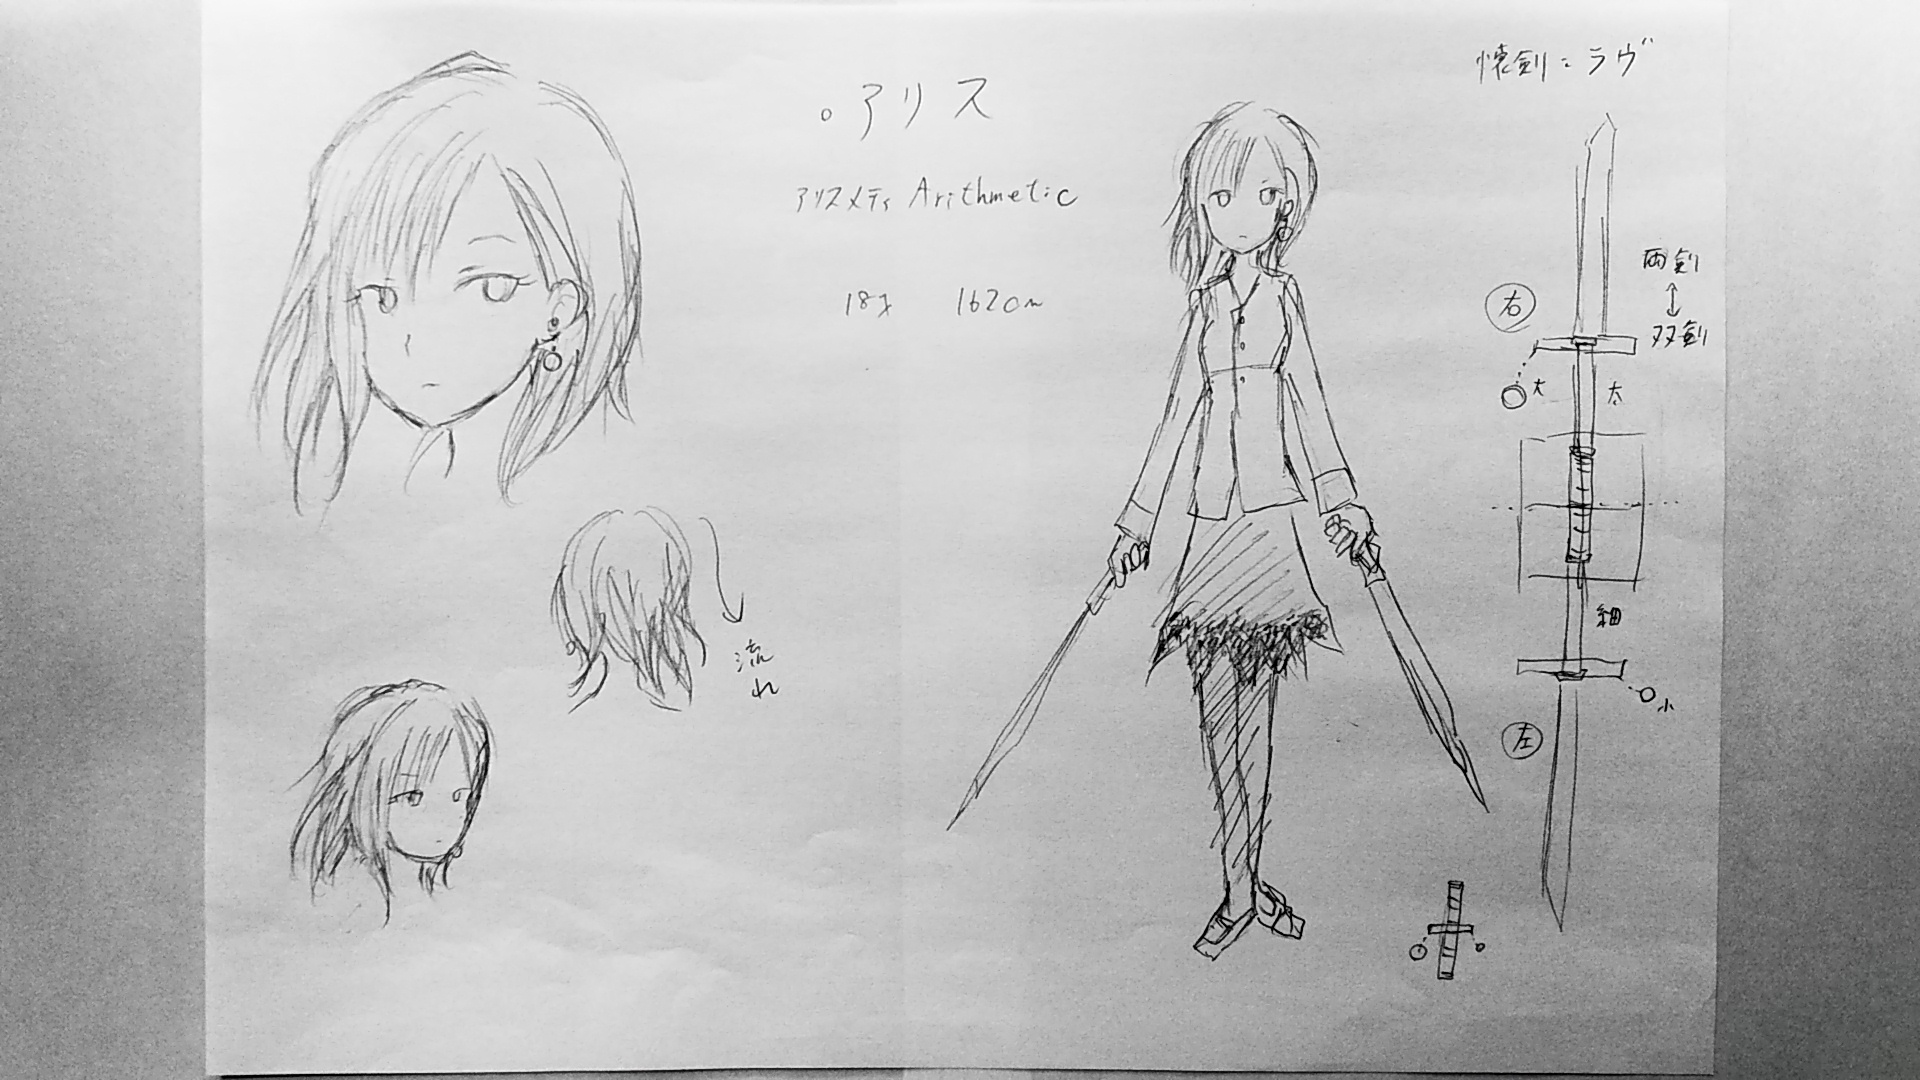 。アリス
アリスメティ Arithmetic
18才 162cm
流れ
懐剣:ラヴ
両剣
↕
双剣
右
大 太
細
小
左